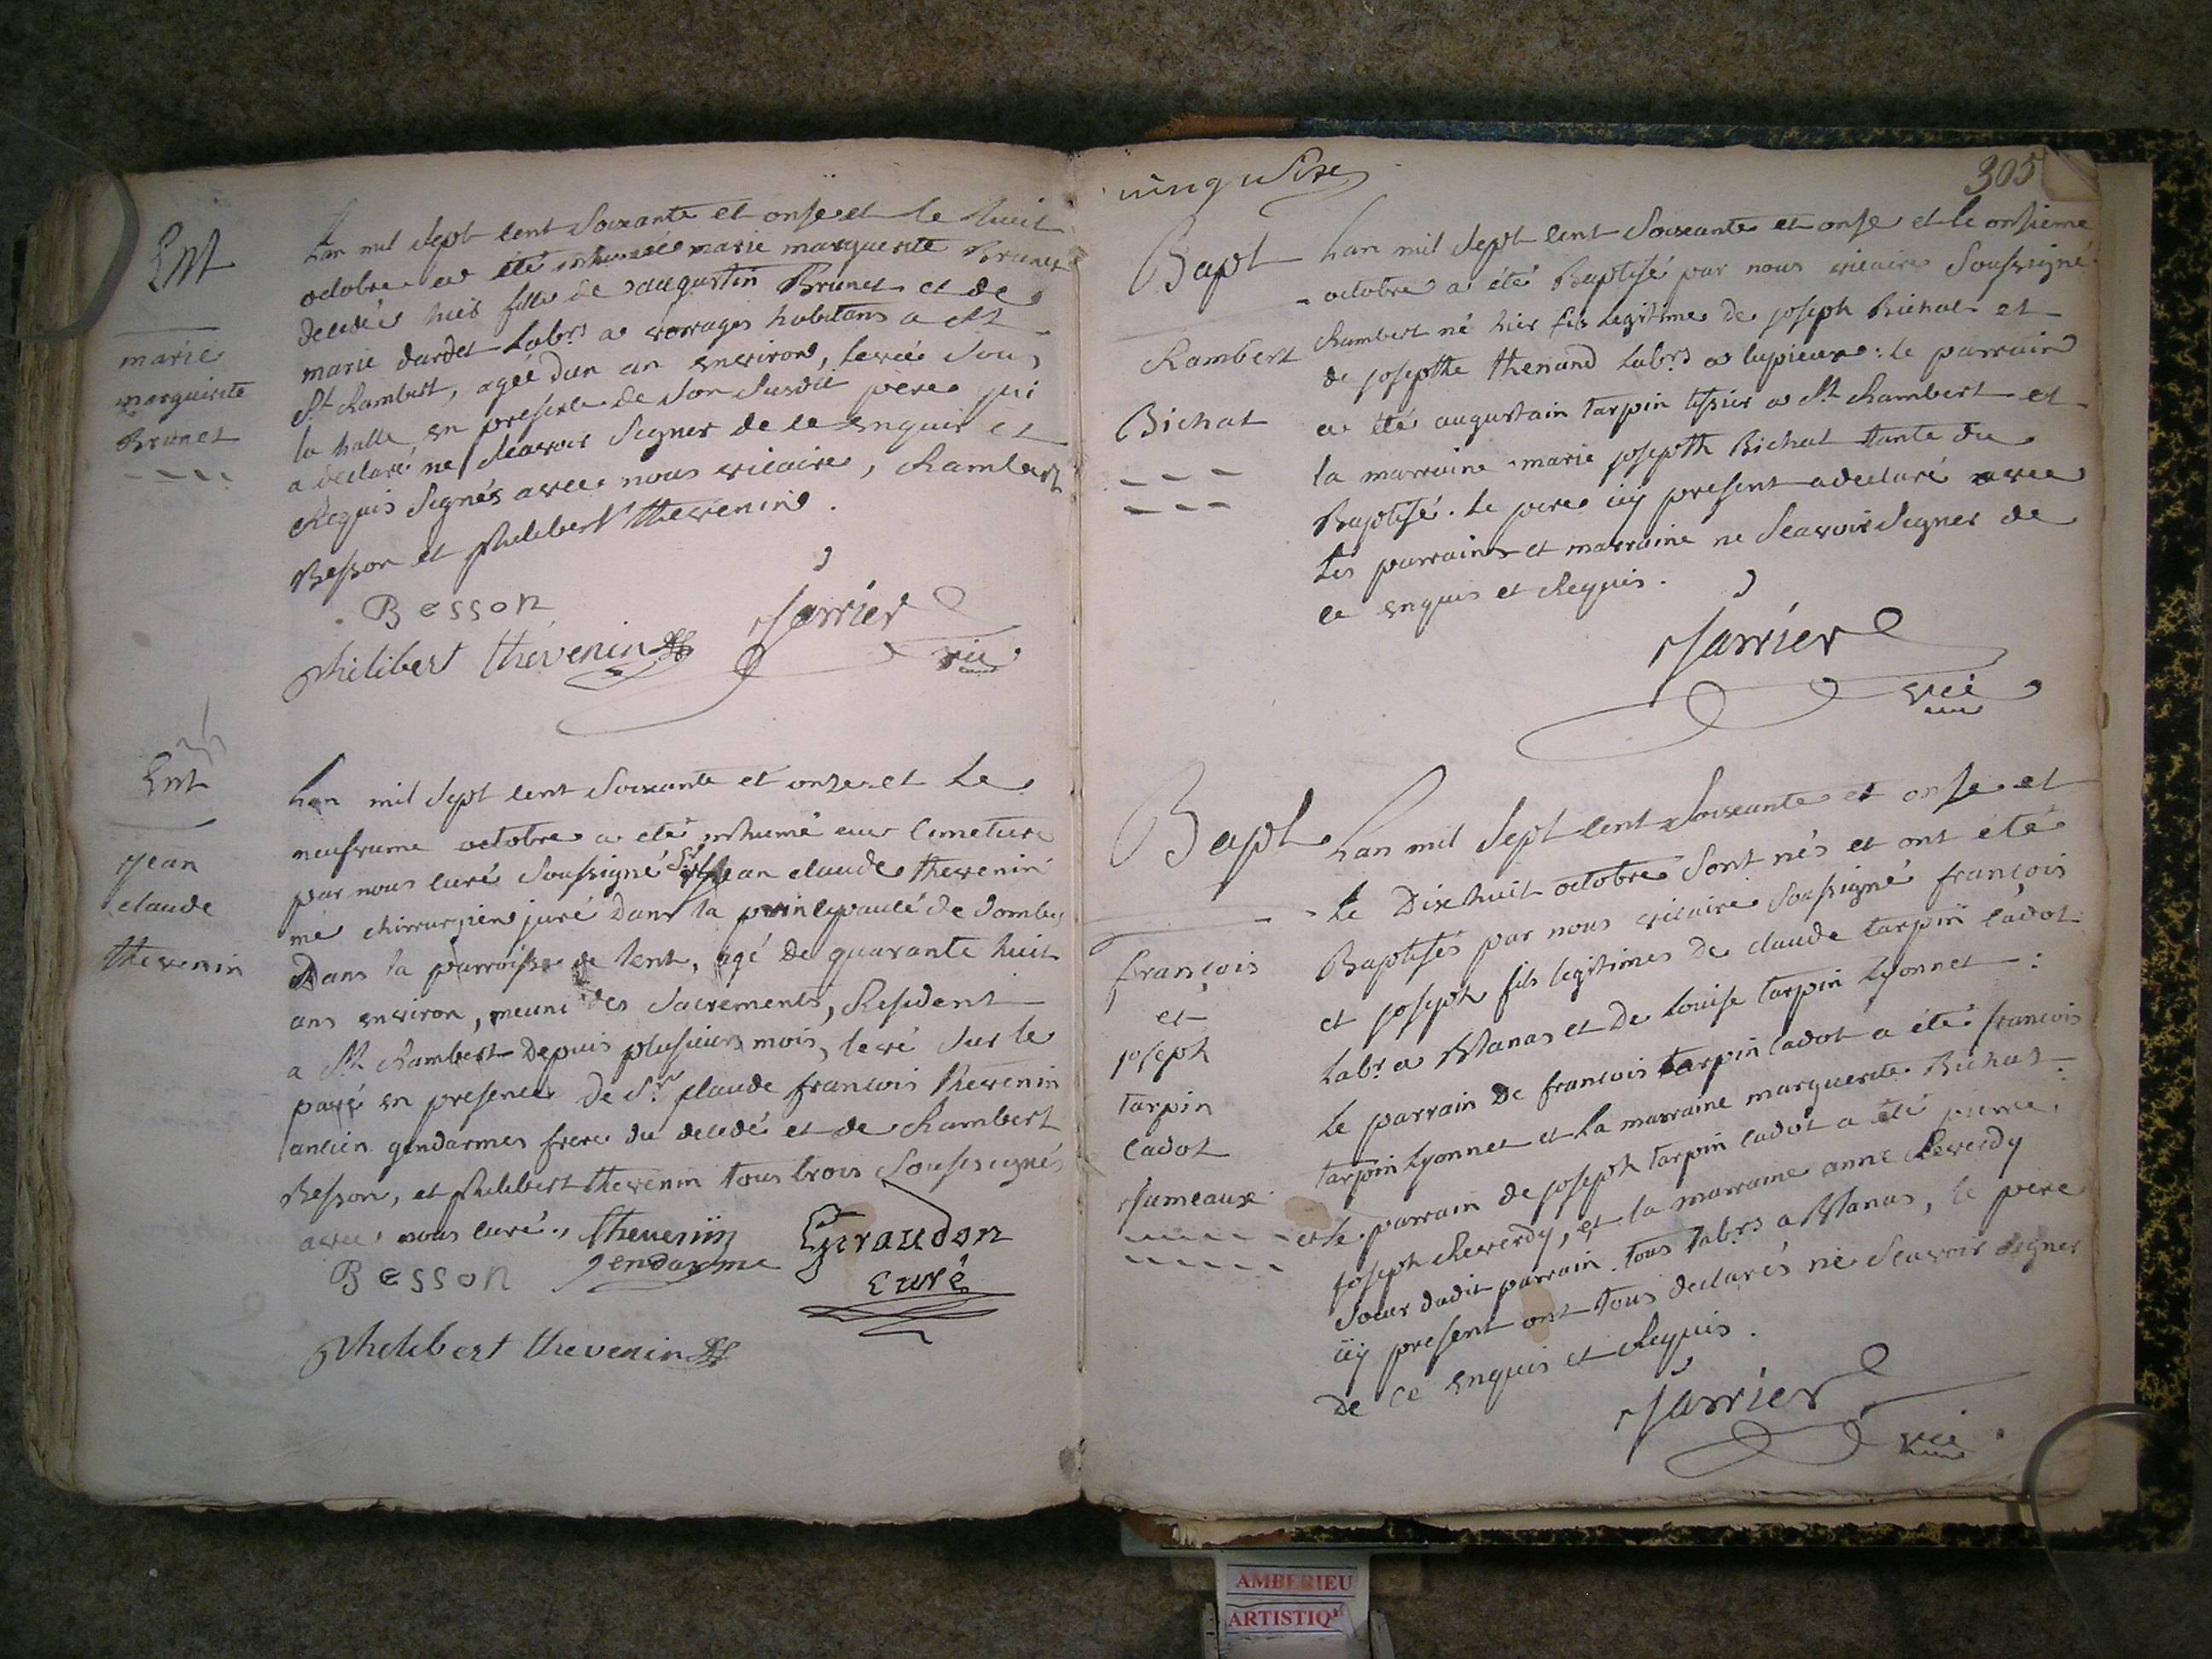 Ent
marie
marguirite
Brunet
Lan mil sept cent soixante et onse et le huit
octobre a été inhumée marie marguerite Brunet
decedée hier fille de augustin Brunet et de
marie dardet labrs a vorages habitans a st
st Rambert, agée dun an environ, levée sous
la halle, en presence de son susdit pere qui
a declaré ne sçavoir signer de ce enquis et
Requis signés avec nous vicaire, Rambert
Besson et philibert thevenin.
Besson
Philibert thévenin
Jarrier
vic
Ent
Jean
claude
thevenin
Lan mil sept cent soixante et onze et le
neufvieme octobre a été inhumé au cimetiere
par nous curé soussigné Sr jean claude thevenin
me chirurgien juré Dans la principauté de dombes
Dans la parroisse de lent, agé de quarante huit
ans environ, meuni des sacrements, Resident
a St Rambert Depuis plusieurs mois, levé sur le
pavé en presence De Sr claude francois thevenin
ancien gendarmes frere du decedé et de Rambert
Besson, et philibert thevenin tous trois soussignés
avec nous curé.
thevenin
gendarme
Giraudon
curé
Besson
Philibert thevenin
305
Bapt
Rambert
Bichat
Lan mil sept cent soixante et onse et le onsieme
octobre a été Baptisé par nous vicaire soussigné
Rambert né hier fils legitime de joseph Bichat et
de josepthe thenand labrs a lupieux: le parrain
a été augustain tarpin tissier a St Rambert et
la marraine marie josepth Bichat tante du
Baptisé. Le pere icy present a declaré avec
les parrains et marraine ne sçavoir signer de
ce enquis et Requis.
Jarrier
vic
Bapt
françois
et
joseph
tarpin
Cadot
Jumeaux
Lan mil sept cent soixante et onse et
le Dixhuit octobre sont nés et ont été
Baptisés par nous vicaire soussigné françois
et joseph fils legitimes de claude tarpin Cadot
labr a Blanas et De Louise tarpin lyonnet:
Le parrain De francois tarpin Cadot a été francois
tarpin lyonnet et La marraine marguerite Bichat:
et le parrain de joseph tarpin cadot a été pierre
joseph Reverdy, et la marraine anne Reverdy
soeur dudit parrain. tous labrs a Blanas, le pere
icy present ont tous declarés ne sçavoir signer
De ce enquis et Requis.
Jarrier
vic
AMBERIEU
ARTISTIQ